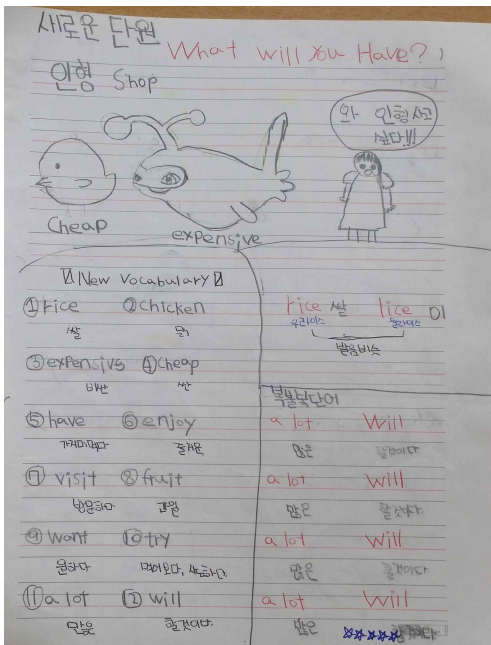 새로운 단원
What will You Have?
인형 Shop
와 인형사고
싶다!!!
cheap
expensive
New Vocabulary
① rice ② chicken
쌀 닭
③ expensive ④ cheap
비싼 싼
⑤ have ⑥ enjoy
가지다,먹다 즐거운
⑦ visit ⑧ fruit
방문하다 과일
⑨ want ⑩ try
원하다
⑪ a lot ⑫ will
많은 할것이다
rice 쌀 lice 이
우라이스 을라이스
발음비슷
복불복단어
a lot will
많은 할것이다
a lot will
많은 할것이다
a lot will
많은 할것이다
a lot will
많은 할것이다